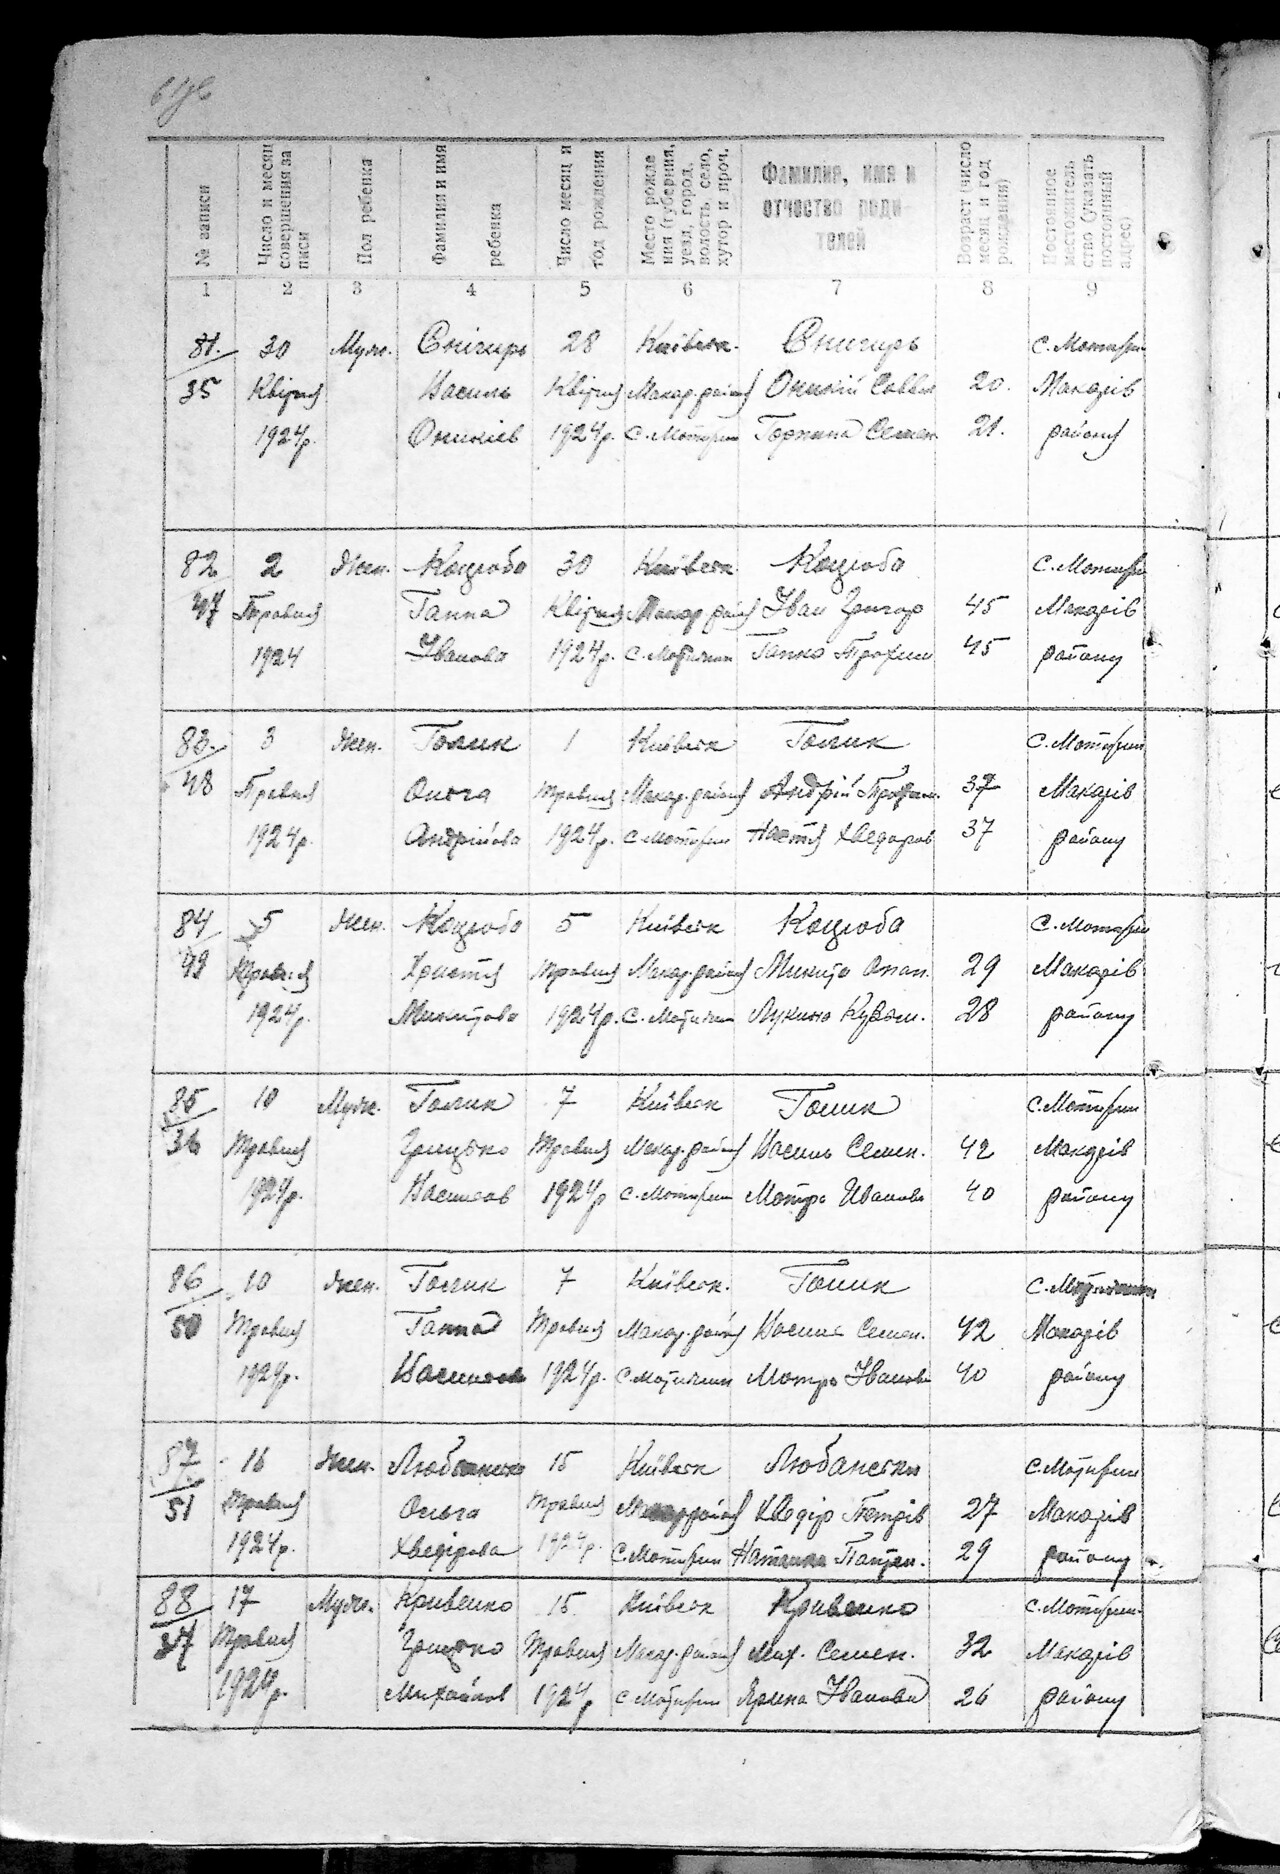 № записи
Число и месяц совершения записи
Пол ребенка
Фамилия и имя ребенка
Число месяц и год рождения
Место рождения (губерния, уезд, город, волость, село, хутор и проч.
Фамилия, имя и отчество родителей
Возраст (число месяц и год рождения)
Постоянное местожительство (указать постоянный адрес)
1 2 3 4 5 6 7 8 9
81. 30 Муж. Снігирь 28 Київськ. Снигирь с. Мотижин
35 Квітня Василь Квітня Макар. района Оникій Савви 20. Макарів
1924р. Оникіев 1924р. с. Мотижин Горпина Семен. 21. району
82 2 Жен. Коцюба 30 Київськ Коцюба с. Мотижин
47 Травня Ганна Квітня Макар. района Іван Григор 45 Макарів
1924 Іванова 1924р. с. Мотижин Ганна Трохим 45 району
83. 3 Жен. Голик 1 Київськ Голик с. Мотижин
48 Травня Ольга Травня Макар. района Андрій Трохим. 37 Макарів
1924р. Андрійова 1924р. с. Мотижин Настя Хведоров 37 району
84 5 Жен. Коцюба 5 Київськ Коцюба с. Мотижин
49 Травня Христя Травня Макар. района Микита Опан. 29 Макарів
1924р. Микитова 1924р. с. Мотижин Лукина Кузьм. 28 району
85 10 Муж. Голик 7 Київськ Голик с. Мотижин
36 Травня Грицько Травня Макар. района Василь Семен. 42 Макарів
1924р. Васильов 1924р с. Мотижин Мотря Иванова 40 району
86 10 Жен. Голик 7 Київськ. Голик с. Мотижин
50 Травня Ганна Травня Макар. района Василь Семен. 42 Макарів
1924р. Васильова 1924р. с. Мотижин Мотря Іванова 40 району
87 16 Жен. 15 Київськ Любански с. Мотижин
51 Травня Ольга Травня Макар. района Хведір Петрів 27 Макарів
1924р. Хведірова 1924р. с. Мотижин Наталка 29 району
88 17 Муж. Кривенко 15. Київськ Кривенко с. Мотижин
37 Травня Грицько Травня Макар. района Мих. Семен. 32 Макарів
1924р. Михайлов 1924р с. Мотижин Ярина Іванова 26 району